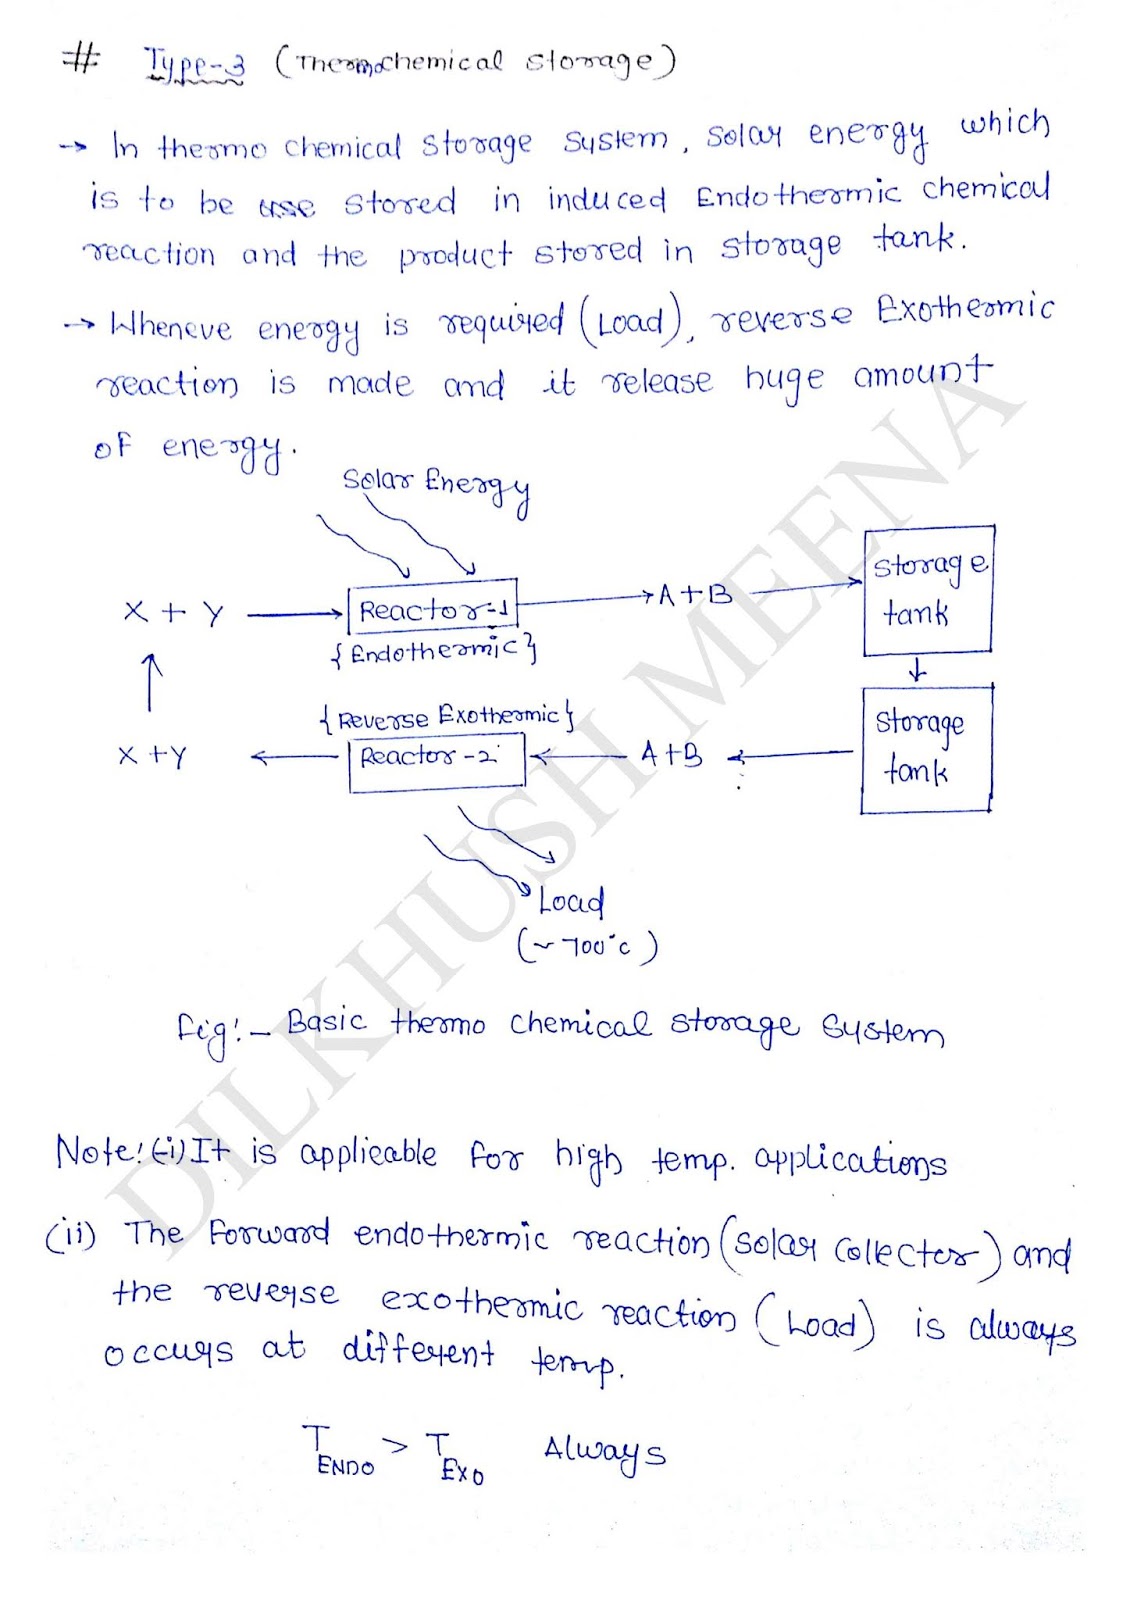 # Type-3 (Thermochemical storage)
→ In thermo chemical storage system, solar energy which
is to be use stored in induced Endothermic chemical
reaction and the product stored in storage tank.
→ Wheneve energy is required (Load), reverse Exothermic
reaction is made and it release huge amount
of energy.
Solar Energy
X + Y → Reactor-1 → A+B → storage
tank
{Endothermic}
{Reverse Exothermic}
X + Y ← Reactor-2 ← A+B ← storage
tank
Load
(~700°c)
fig:- Basic thermo chemical storage system
Note:(i) It is applicable for high temp. applications
(ii) The forward endothermic reaction (solar collector) and
the reverse exothermic reaction (Load) is always
occurs at different temp.
T ENDO > T EXO Always
DILKHUSH MEENA